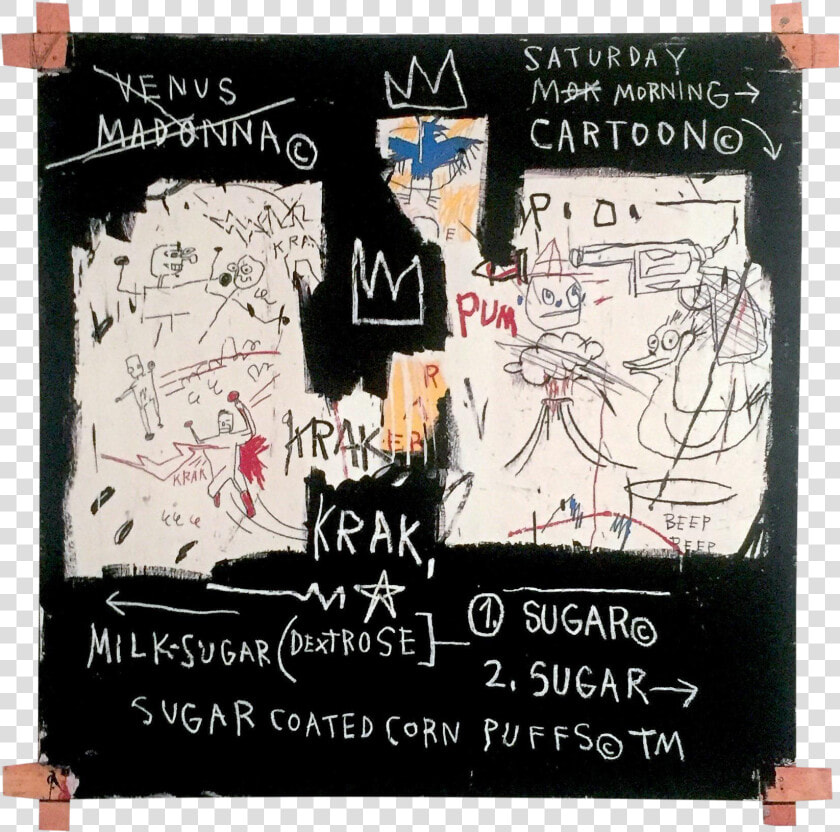 VENUS
MADONNA©
SATURDAY
MOK MORNING→
CARTOON©
KRAK
P.O.
PUM
R
KRAK
EB
KRAK
KRAK,
BEEP
BEEP
MILK-SUGAR (DEXTROSE]
1. SUGAR©
2. SUGAR→
SUGAR COATED CORN PUFFS© TM